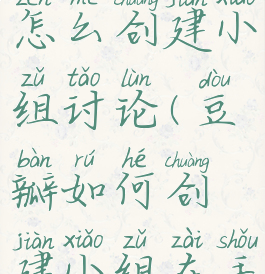 zěn me chuàng jiàn xiǎo
怎么创建小
zǔ tǎo lùn dòu
组讨论(豆
bàn rú hé chuàng
瓣如何创
jiàn xiǎo zǔ zài shǒu
建小组在手